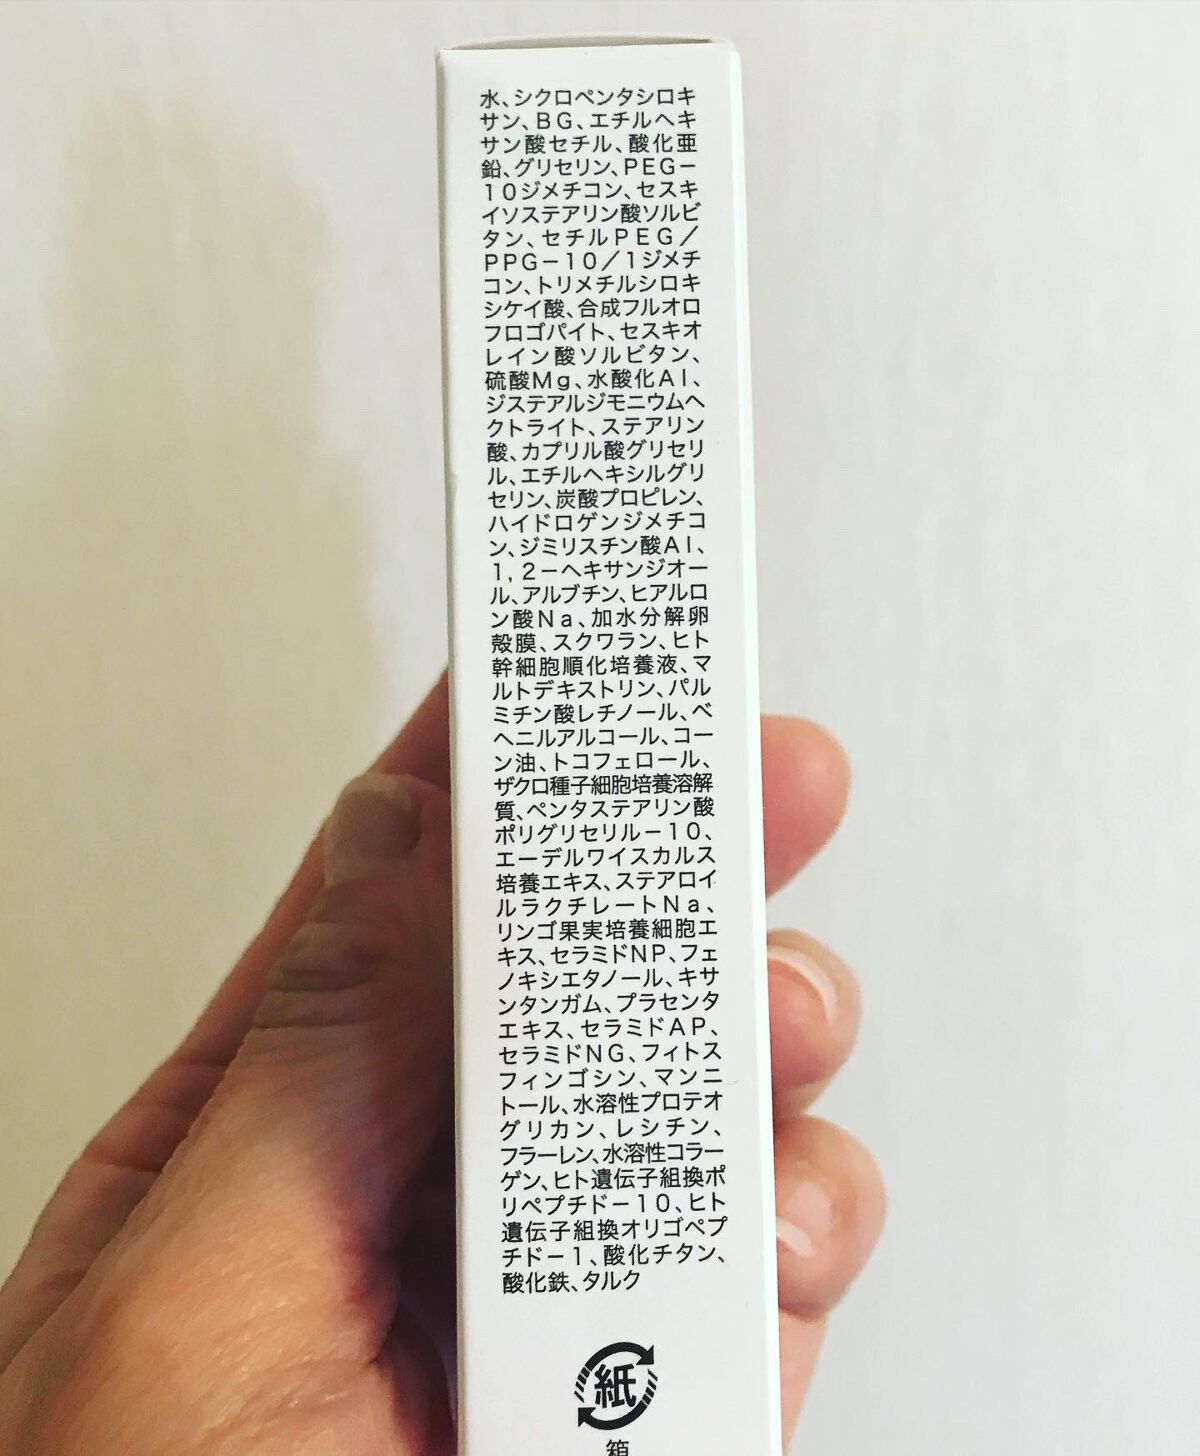 水、シクロペンタシロキ
サン、BG、エチルヘキ
サン酸セチル、酸化亜
鉛、グリセリン、PEG－
10ジメチコン、セスキ
イソステアリン酸ソルビ
タン、セチルPEG／
PPG－10／1ジメチ
コン、トリメチルシロキ
シケイ酸、合成フルオロ
フロゴパイト、セスキオ
レイン酸ソルビタン、
硫酸Mg、水酸化Al、
ジステアルジモニウムヘ
クトライト、ステアリン
酸、カプリル酸グリセリ
ル、エチルヘキシルグリ
セリン、炭酸プロピレン、
ハイドロゲンジメチコ
ン、ジミリスチン酸Al、
1，2－ヘキサンジオー
ル、アルブチン、ヒアルロ
ン酸Na、加水分解卵
殻膜、スクワラン、ヒト
幹細胞順化培養液、マ
ルトデキストリン、パル
ミチン酸レチノール、ベ
ヘニルアルコール、コー
ン油、トコフェロール、
ザクロ種子細胞培養溶解
質、ペンタステアリン酸
ポリグリセリル－10、
エーデルワイスカルス
培養エキス、ステアロイ
ルラクチレートNa、
リンゴ果実培養細胞エ
キス、セラミドNP、フェ
ノキシエタノール、キサ
ンタンガム、プラセンタ
エキス、セラミドAP、
セラミドNG、フィトス
フィンゴシン、マンニ
トール、水溶性プロテオ
グリカン、レシチン、
フラーレン、水溶性コラー
ゲン、ヒト遺伝子組換ポ
リペプチド－10、ヒト
遺伝子組換オリゴペプ
チド－1、酸化チタン、
酸化鉄、タルク
紙
箱